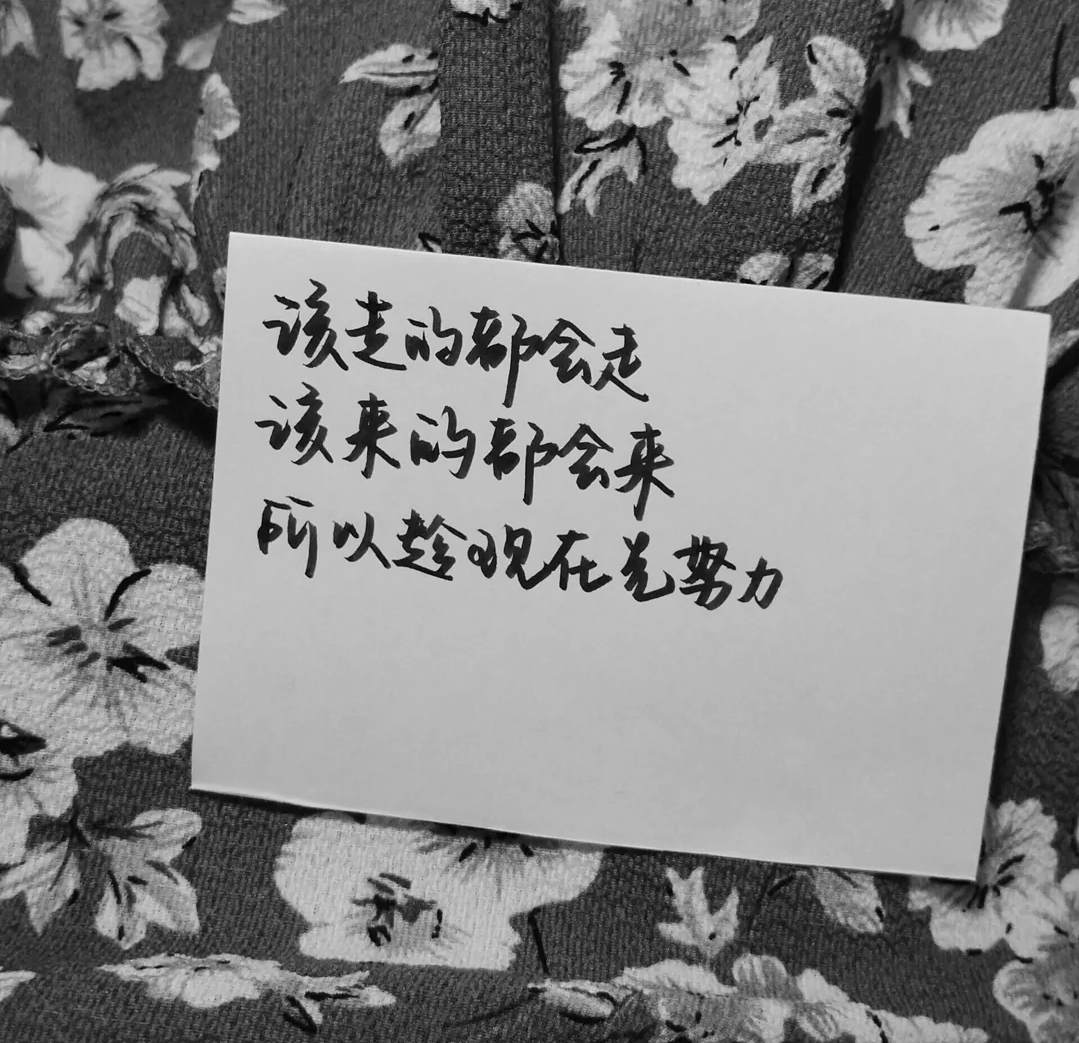 该走的都会走
该来的都会来
所以趁现在先努力